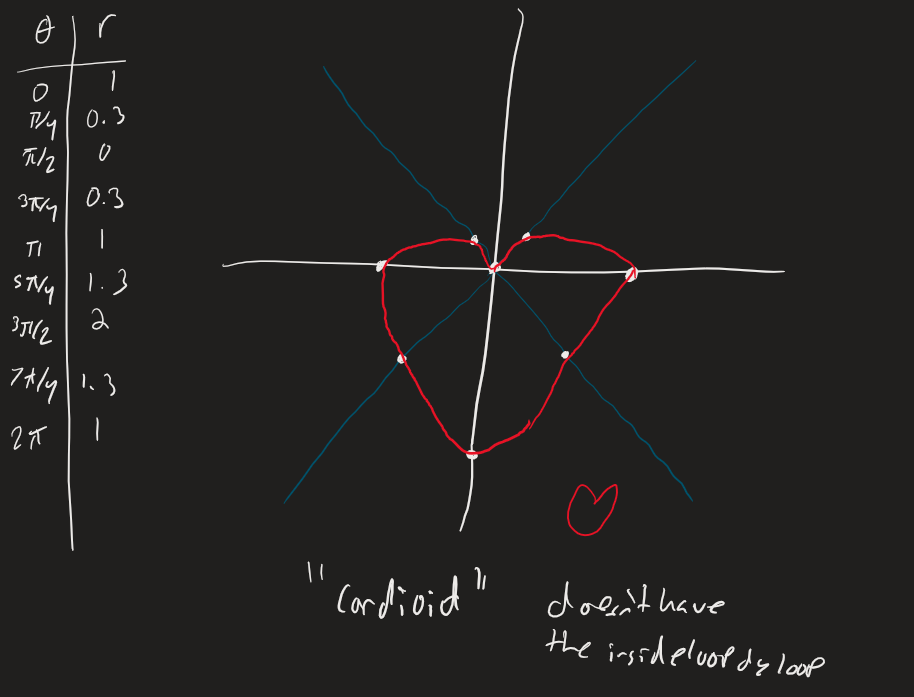 θ r
0 1
π/4 0.3
π/2 0
3π/4 0.3
π 1
5π/4 1.3
3π/2 2
7π/4 1.3
2π 1
"Cardioid"
doesn't have
the inside loop dy loop